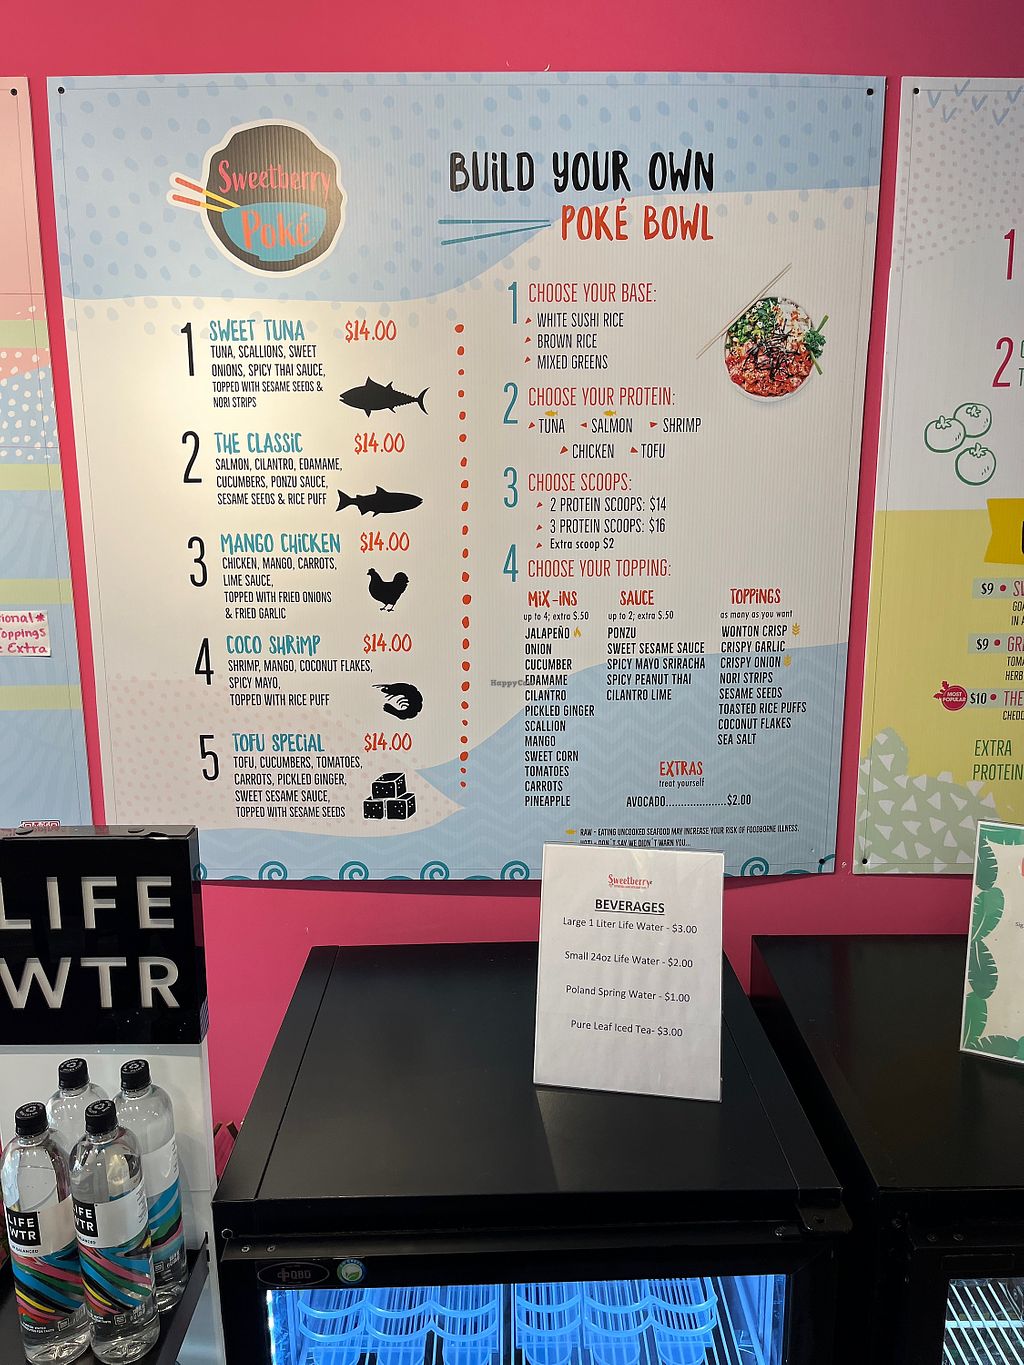 Sweetberry
Poké
BUILD YOUR OWN
POKÉ BOWL
1 SWEET TUNA $14.00
TUNA, SCALLIONS, SWEET
ONIONS, SPICY THAI SAUCE,
TOPPED WITH SESAME SEEDS &
NORI STRIPS
2 THE CLASSIC $14.00
SALMON, CILANTRO, EDAMAME,
CUCUMBERS, PONZU SAUCE,
SESAME SEEDS & RICE PUFF
3 MANGO CHICKEN $14.00
CHICKEN, MANGO, CARROTS,
LIME SAUCE,
TOPPED WITH FRIED ONIONS
& FRIED GARLIC
4 COCO SHRIMP $14.00
SHRIMP, MANGO, COCONUT FLAKES,
SPICY MAYO,
TOPPED WITH RICE PUFF
5 TOFU SPECIAL $14.00
TOFU, CUCUMBERS, TOMATOES,
CARROTS, PICKLED GINGER,
SWEET SESAME SAUCE,
TOPPED WITH SESAME SEEDS
1 CHOOSE YOUR BASE:
WHITE SUSHI RICE
BROWN RICE
MIXED GREENS
2 CHOOSE YOUR PROTEIN:
TUNA SALMON SHRIMP
CHICKEN TOFU
3 CHOOSE SCOOPS:
2 PROTEIN SCOOPS: $14
3 PROTEIN SCOOPS: $16
Extra scoop $2
4 CHOOSE YOUR TOPPING:
MIX-INS
up to 4; extra $.50
JALAPEÑO
ONION
CUCUMBER
EDAMAME
CILANTRO
PICKLED GINGER
SCALLION
MANGO
SWEET CORN
TOMATOES
CARROTS
PINEAPPLE
SAUCE
up to 2; extra $.50
PONZU
SWEET SESAME SAUCE
SPICY MAYO SRIRACHA
SPICY PEANUT THAI
CILANTRO LIME
TOPPINGS
as many as you want
WONTON CRISP
CRISPY GARLIC
CRISPY ONION
NORI STRIPS
SESAME SEEDS
TOASTED RICE PUFFS
COCONUT FLAKES
SEA SALT
EXTRAS
treat yourself
AVOCADO....................$2.00
RAW - EATING UNCOOKED SEAFOOD MAY INCREASE YOUR RISK OF FOODBORNE ILLNESS.
HOT! - DON'T SAY WE DIDN'T WARN YOU...
ional*
Toppings
Extra
1
2
$9
$9
MOST
POPULAR
$10 • THE
EXTRA
PROTEIN
Sweetberry
BEVERAGES
Large 1 Liter Life Water - $3.00
Small 24oz Life Water - $2.00
Poland Spring Water - $1.00
Pure Leaf Iced Tea- $3.00
LIFE
WTR
LIFE
WTR
LIFE
WTR